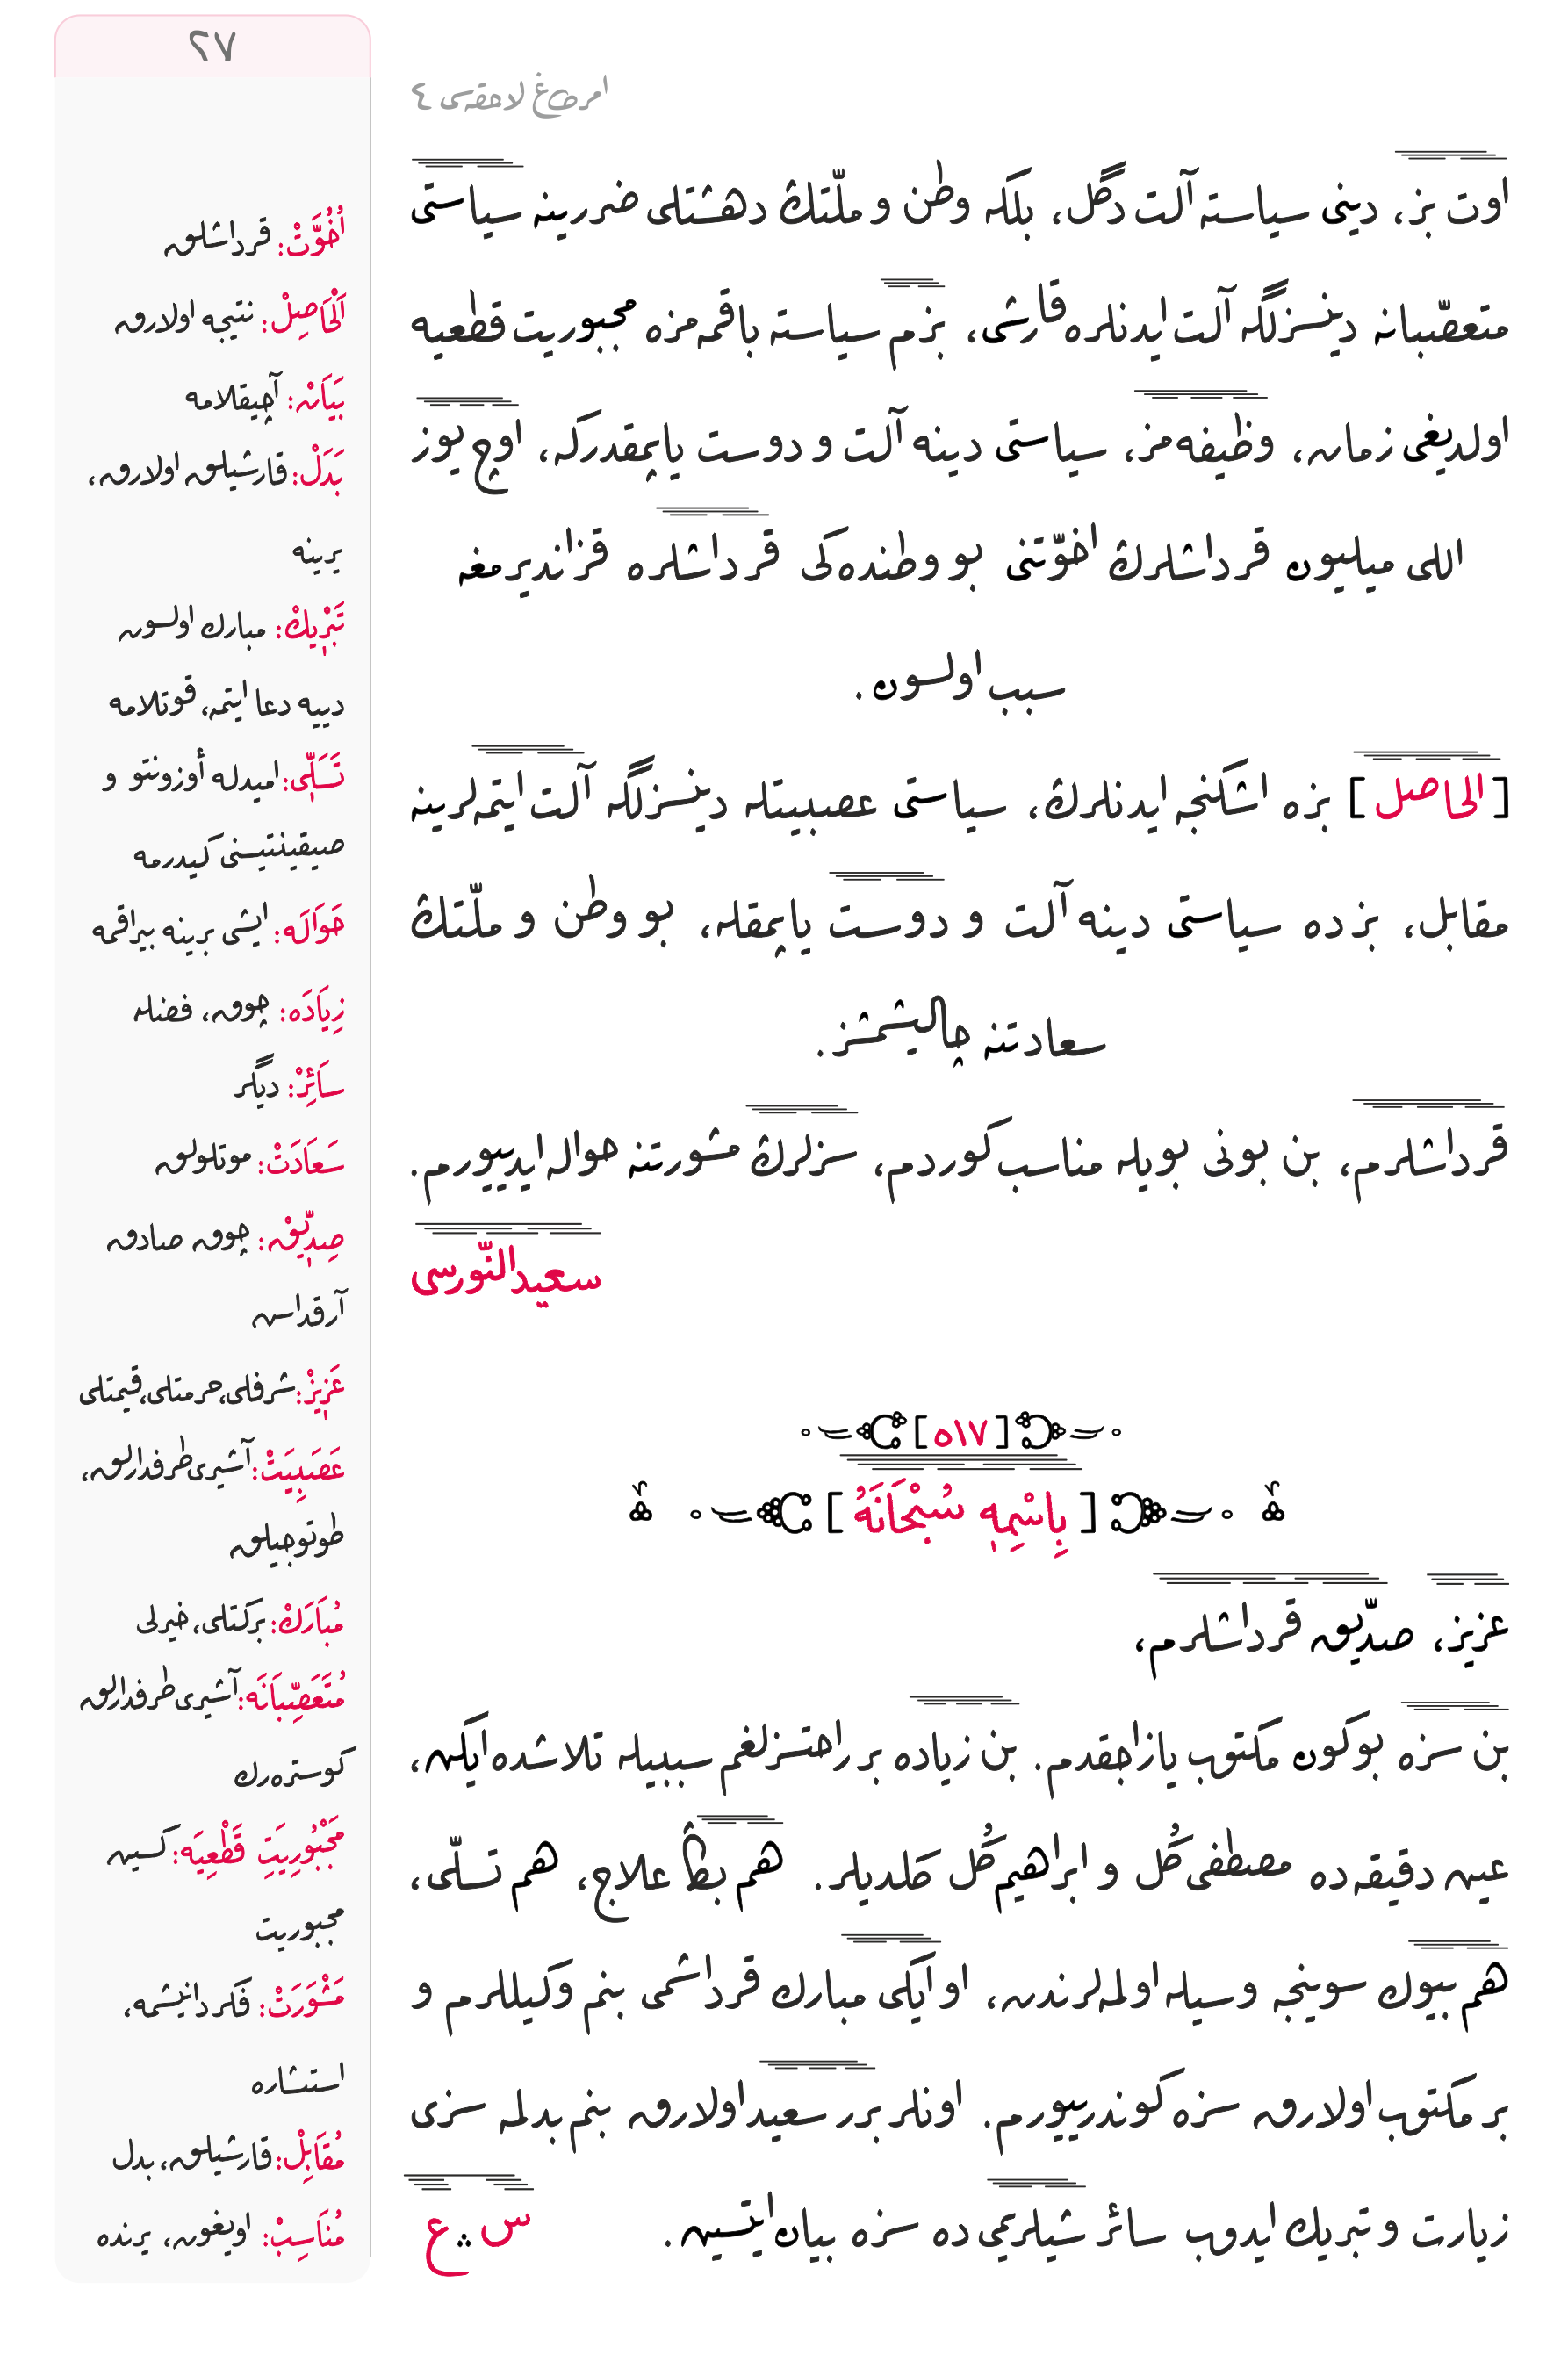 ٢٧
امرطاغ لاحقه‌سی ٤
اوت بز، دینی سیاسته آلت دگل، بلكه وطن و ملّتڭ دهشتلی ضررینه سیاستی
متعصّبانه دینسزلگه آلت ایدنلره قارشی، بزم سیاسته باقمه‌مزه مجبوریت قطعیه
اولدیغی زمان، وظیفه‌مز، سیاستی دینه آلت و دوست یاپمقدركه، اوچ یوز
اللی میلیون قرداشلرڭ اخوّتنی بو وطنده‌كی قرداشلره قزاندیرمغه
سبب اولسون.
[الحاصل] بزه اشكنجه ایدنلرڭ، سیاستی عصبییتله دینسزلگه آلت ایتمه‌لرینه
مقابل، بز ده سیاستی دینه آلت و دوست یاپمقله، بو وطن و ملّتڭ
سعادتنه چالیشمشز.
قرداشلرم، بن بونی بویله مناسب كوردم، سزلرڭ مشورتنه حواله ایدییورم.
سعیدالنّورسی
[٥١٧]
[بِاسْمِهٖ سُبْحَانَهُ]
عزیز، صدّیق قرداشلرم،
بن سزه بوكون مكتوب یازاجقدم. بن زیاده بر راحتسزلغم سببیله تلاشده ایكن،
عین دقیقه‌ده مصطفی گُل و ابراهیم گُل گلدیلر. هم بڭا علاج، هم تسلّی،
هم بیوك سوینجه وسیله اولمه‌لرندن، او ایكی مبارك قرداشمی بنم وكیللرم و
بر مكتوب اولارق سزه كوندرییورم. اونلر برر سعید اولارق بنم بدلمه سزی
زیارت و تبریك ایدوب سائر شیلریمی ده سزه بیان ایتسین. س ؞ ع
اُخُوَّتْ: قرداشلق
اَلْحَاصِلْ: نتیجه اولارق
بَیَانْ: آچیقلامه
بَدَلْ: قارشیلق اولارق،
یرینه
تَبْرٖیكْ: مبارك اولسون
دییه دعا ایتمه، قوتلامه
تَسَلّٖی: امیدله أوزونتو و
صیقینتیسنی كیدرمه
حَوَالَه: ایشی برینه بیراقمه
زِیَادَه: چوق، فضله
سَائِرْ: دیگر
سَعَادَتْ: موتلولق
صِدّٖیقْ: چوق صادق
آرقداش
عَزٖیزْ: شرفلی، حرمتلی، قیمتلی
عَصَبِیَتْ: آشیری طرفدارلق،
طوتوجیلق
مُبَارَكْ: بركتلی، خیرلی
مُتَعَصِّبَانَه: آشیری طرفدارلق
كوستره‌رك
مَجْبُورِیَتِ قَطْعِیَه: كسین
مجبوریت
مَشْوَرَتْ: فكر دانیشمه،
استشاره
مُقَابِلْ: قارشیلق، بدل
مُنَاسِبْ: اویغون، یرنده